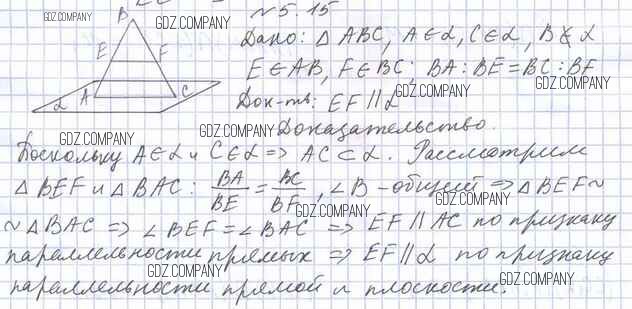 №5.15
B GDZ.COMPANY GDZ.COMPANY
Дано: △ ABC, A∈α, C∈α, B∉α
E F
E∈AB, F∈BC; BA:BE=BC:BF
GDZ.COMPANY GDZ.COMPANY
α A C
Док-ть: EF∥α
GDZ.COMPANY GDZ.COMPANY
Доказательство.
Поскольку A∈α и C∈α ⇒ AC⊂α. Рассмотрим
△BEF и △BAC: BA/BE = BC/BF, ∠B-общий ⇒ △BEF~
GDZ.COMPANY
~△BAC ⇒ ∠BEF=∠BAC ⇒ EF∥AC по признаку
параллельности прямых ⇒ EF∥α по признаку
GDZ.COMPANY GDZ.COMPANY
параллельности прямой и плоскости.